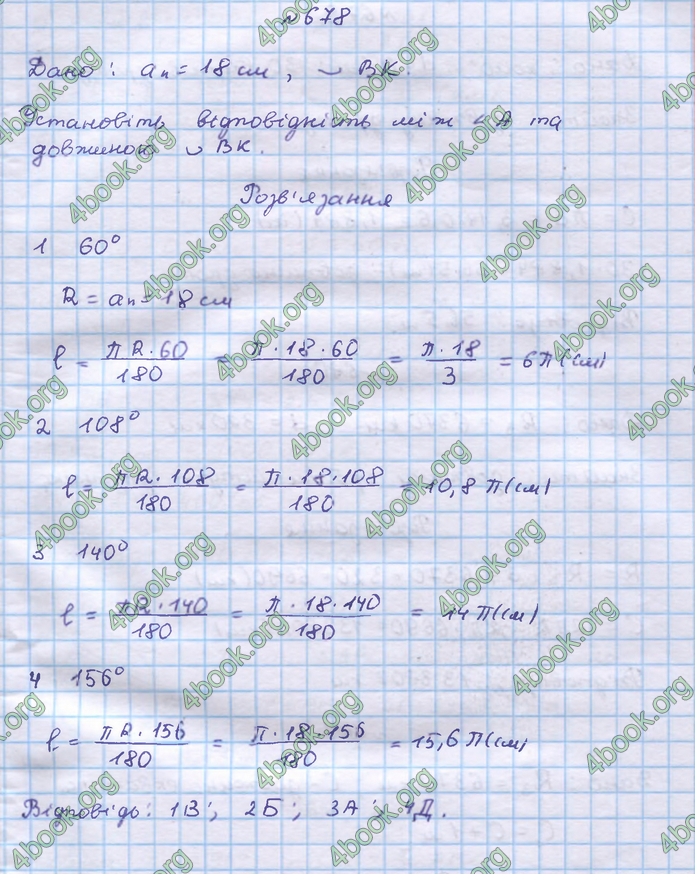 №678
Дано: aₙ = 18 см, ◡ BK.
Установіть відповідність між ∠A та
довжиною ◡ BK.
Розв'язання
1 60°
R = aₙ = 18 см
l = πR·60/180 = π·18·60/180 = π·18/3 = 6π(см)
2 108°
l = πR·108/180 = π·18·108/180 = 10,8 π(см)
3 140°
l = πR·140/180 = π·18·140/180 = 14 π(см)
4 156°
l = πR·156/180 = π·18·156/180 = 15,6 π(см)
Відповідь: 1В; 2Б; 3А; 4Д.
4book.org